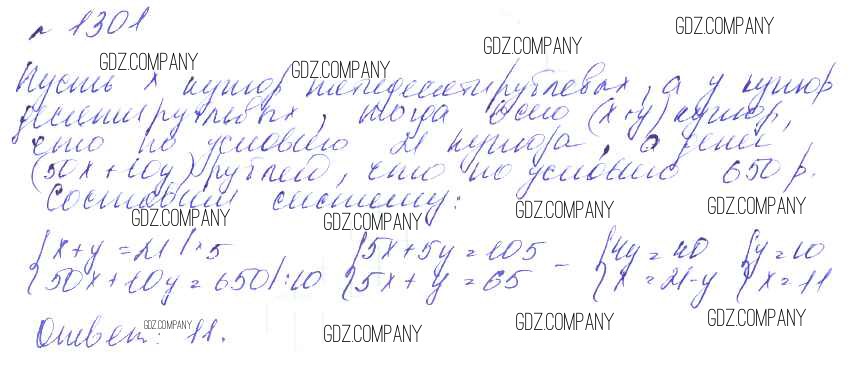 № 1301
GDZ.COMPANY
GDZ.COMPANY
GDZ.COMPANY GDZ.COMPANY
Пусть x купюр пятидесятирублевых, а y купюр
десятирублевых, тогда всего (x+y) купюр,
что по условию 21 купюра, а денег
(50x+10y) рублей, что по условию 650 р.
Составим систему:
GDZ.COMPANY GDZ.COMPANY GDZ.COMPANY GDZ.COMPANY
{x+y=21 |·5 {5x+5y=105 - {4y=40 {y=10
{50x+10y=650 |:10 {5x+y=65 {x=21-y {x=11
Ответ: 11.
GDZ.COMPANY GDZ.COMPANY GDZ.COMPANY GDZ.COMPANY